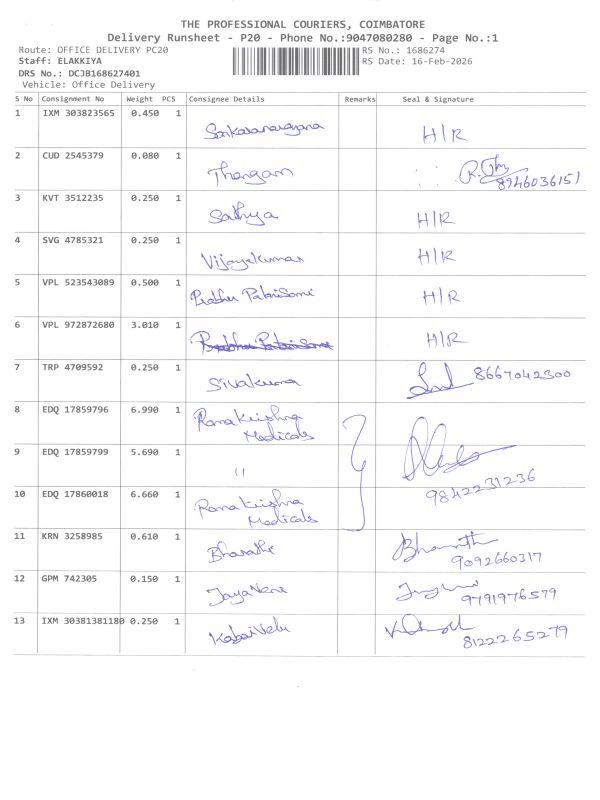 THE PROFESSIONAL COURIERS, COIMBATORE
Delivery Runsheet - P20 - Phone No.:9047080280 - Page No.:1
Route: OFFICE DELIVERY PC20 RS No.: 1686274
Staff: ELAKKIYA RS Date: 16-Feb-2026
DRS No.: DCJB168627401
Vehicle: Office Delivery
S No Consignment No Weight PCS Consignee Details Remarks Seal & Signature
1 IXM 303823565 0.450 1 Sankaranarayana H/R
2 CUD 2545379 0.080 1 Thangam 8946036151
3 KVT 3512235 0.250 1 Sathya H/R
4 SVG 4785321 0.250 1 Vijayakumar H/R
5 VPL 523543089 0.500 1 Prabhu PalaniSami H/R
6 VPL 972872680 3.010 1 H/R
7 TRP 4709592 0.250 1 Sivakumar 8667042300
8 EDQ 17859796 6.990 1 Rama Krishna
Medicals
9 EDQ 17859799 5.690 1 "
9842231236
10 EDQ 17860018 6.660 1 Rama Krishna
Medicals
11 KRN 3258985 0.610 1 Bharathi
9092660317
12 GPM 742305 0.150 1
9791976579
13 IXM 30381381180 0.250 1
8122265279